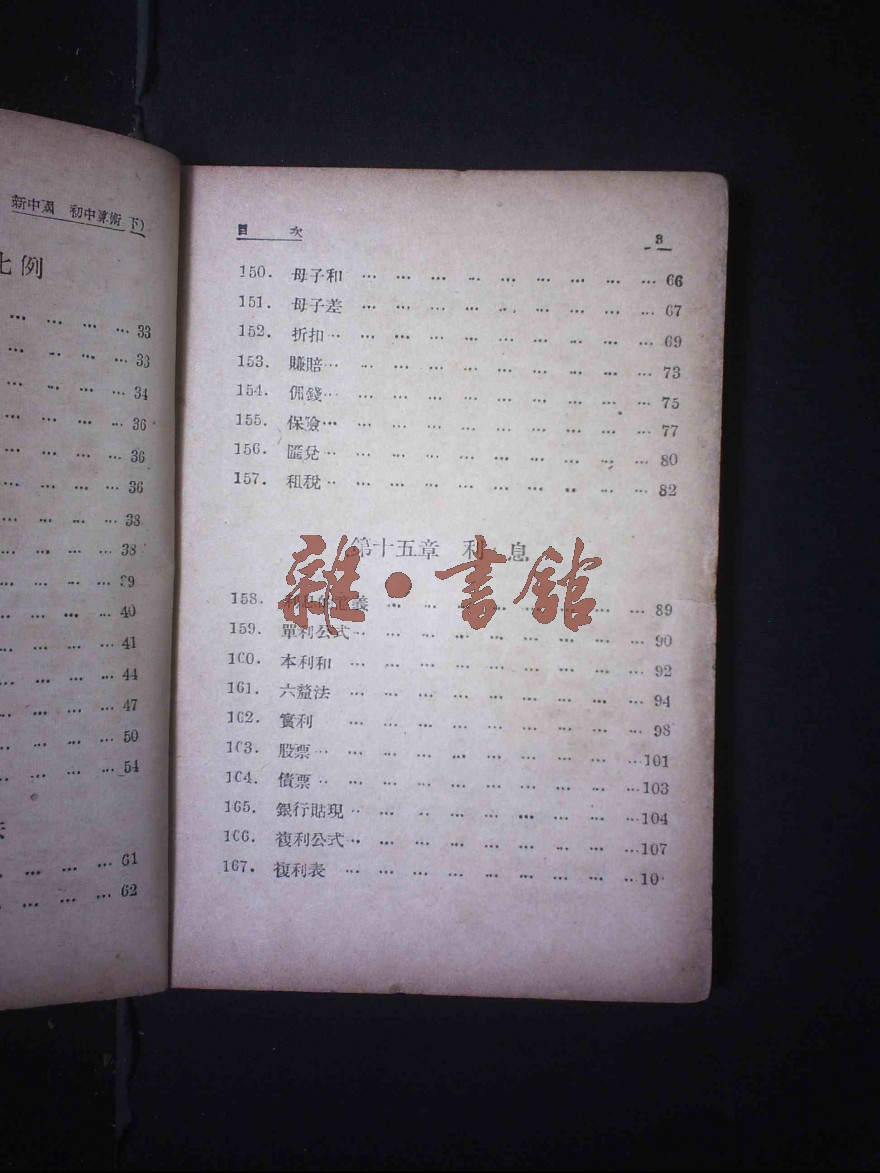 新中國 初中算術 下)
比例
… … … … 33
… … … … 33
… … … … 34
… … … … 36
… … … … 36
… … … … 36
… … … … 38
… … … … 38
… … … … 39
… … … … 40
… … … … 41
… … … … 44
… … … … 47
… … … … 50
… … … … 54
… … … … 61
… … … … 62
目 次 3
150. 母子和 … … … … … … … … … 66
151. 母子差 … … … … … … … … … 67
152. 折扣 … … … … … … … … … … 69
153. 賺賠 … … … … … … … … … … 73
154. 佣錢 … … … … … … … … … … 75
155. 保險 … … … … … … … … … … 77
156. 匯兌 … … … … … … … … … … 80
157. 租稅 … … … … … … … … … … 82
第十五章 利 息
158. 利息的定義 … … … … … … … … 89
159. 單利公式 … … … … … … … … … 90
160. 本利和 … … … … … … … … … 92
161. 六釐法 … … … … … … … … … 94
162. 實利 … … … … … … … … … 98
163. 股票 … … … … … … … … … … 101
164. 債票 … … … … … … … … … … 103
165. 銀行貼現 … … … … … … … … … 104
166. 複利公式 … … … … … … … … … 107
167. 複利表 … … … … … … … … … 10
雜·書館